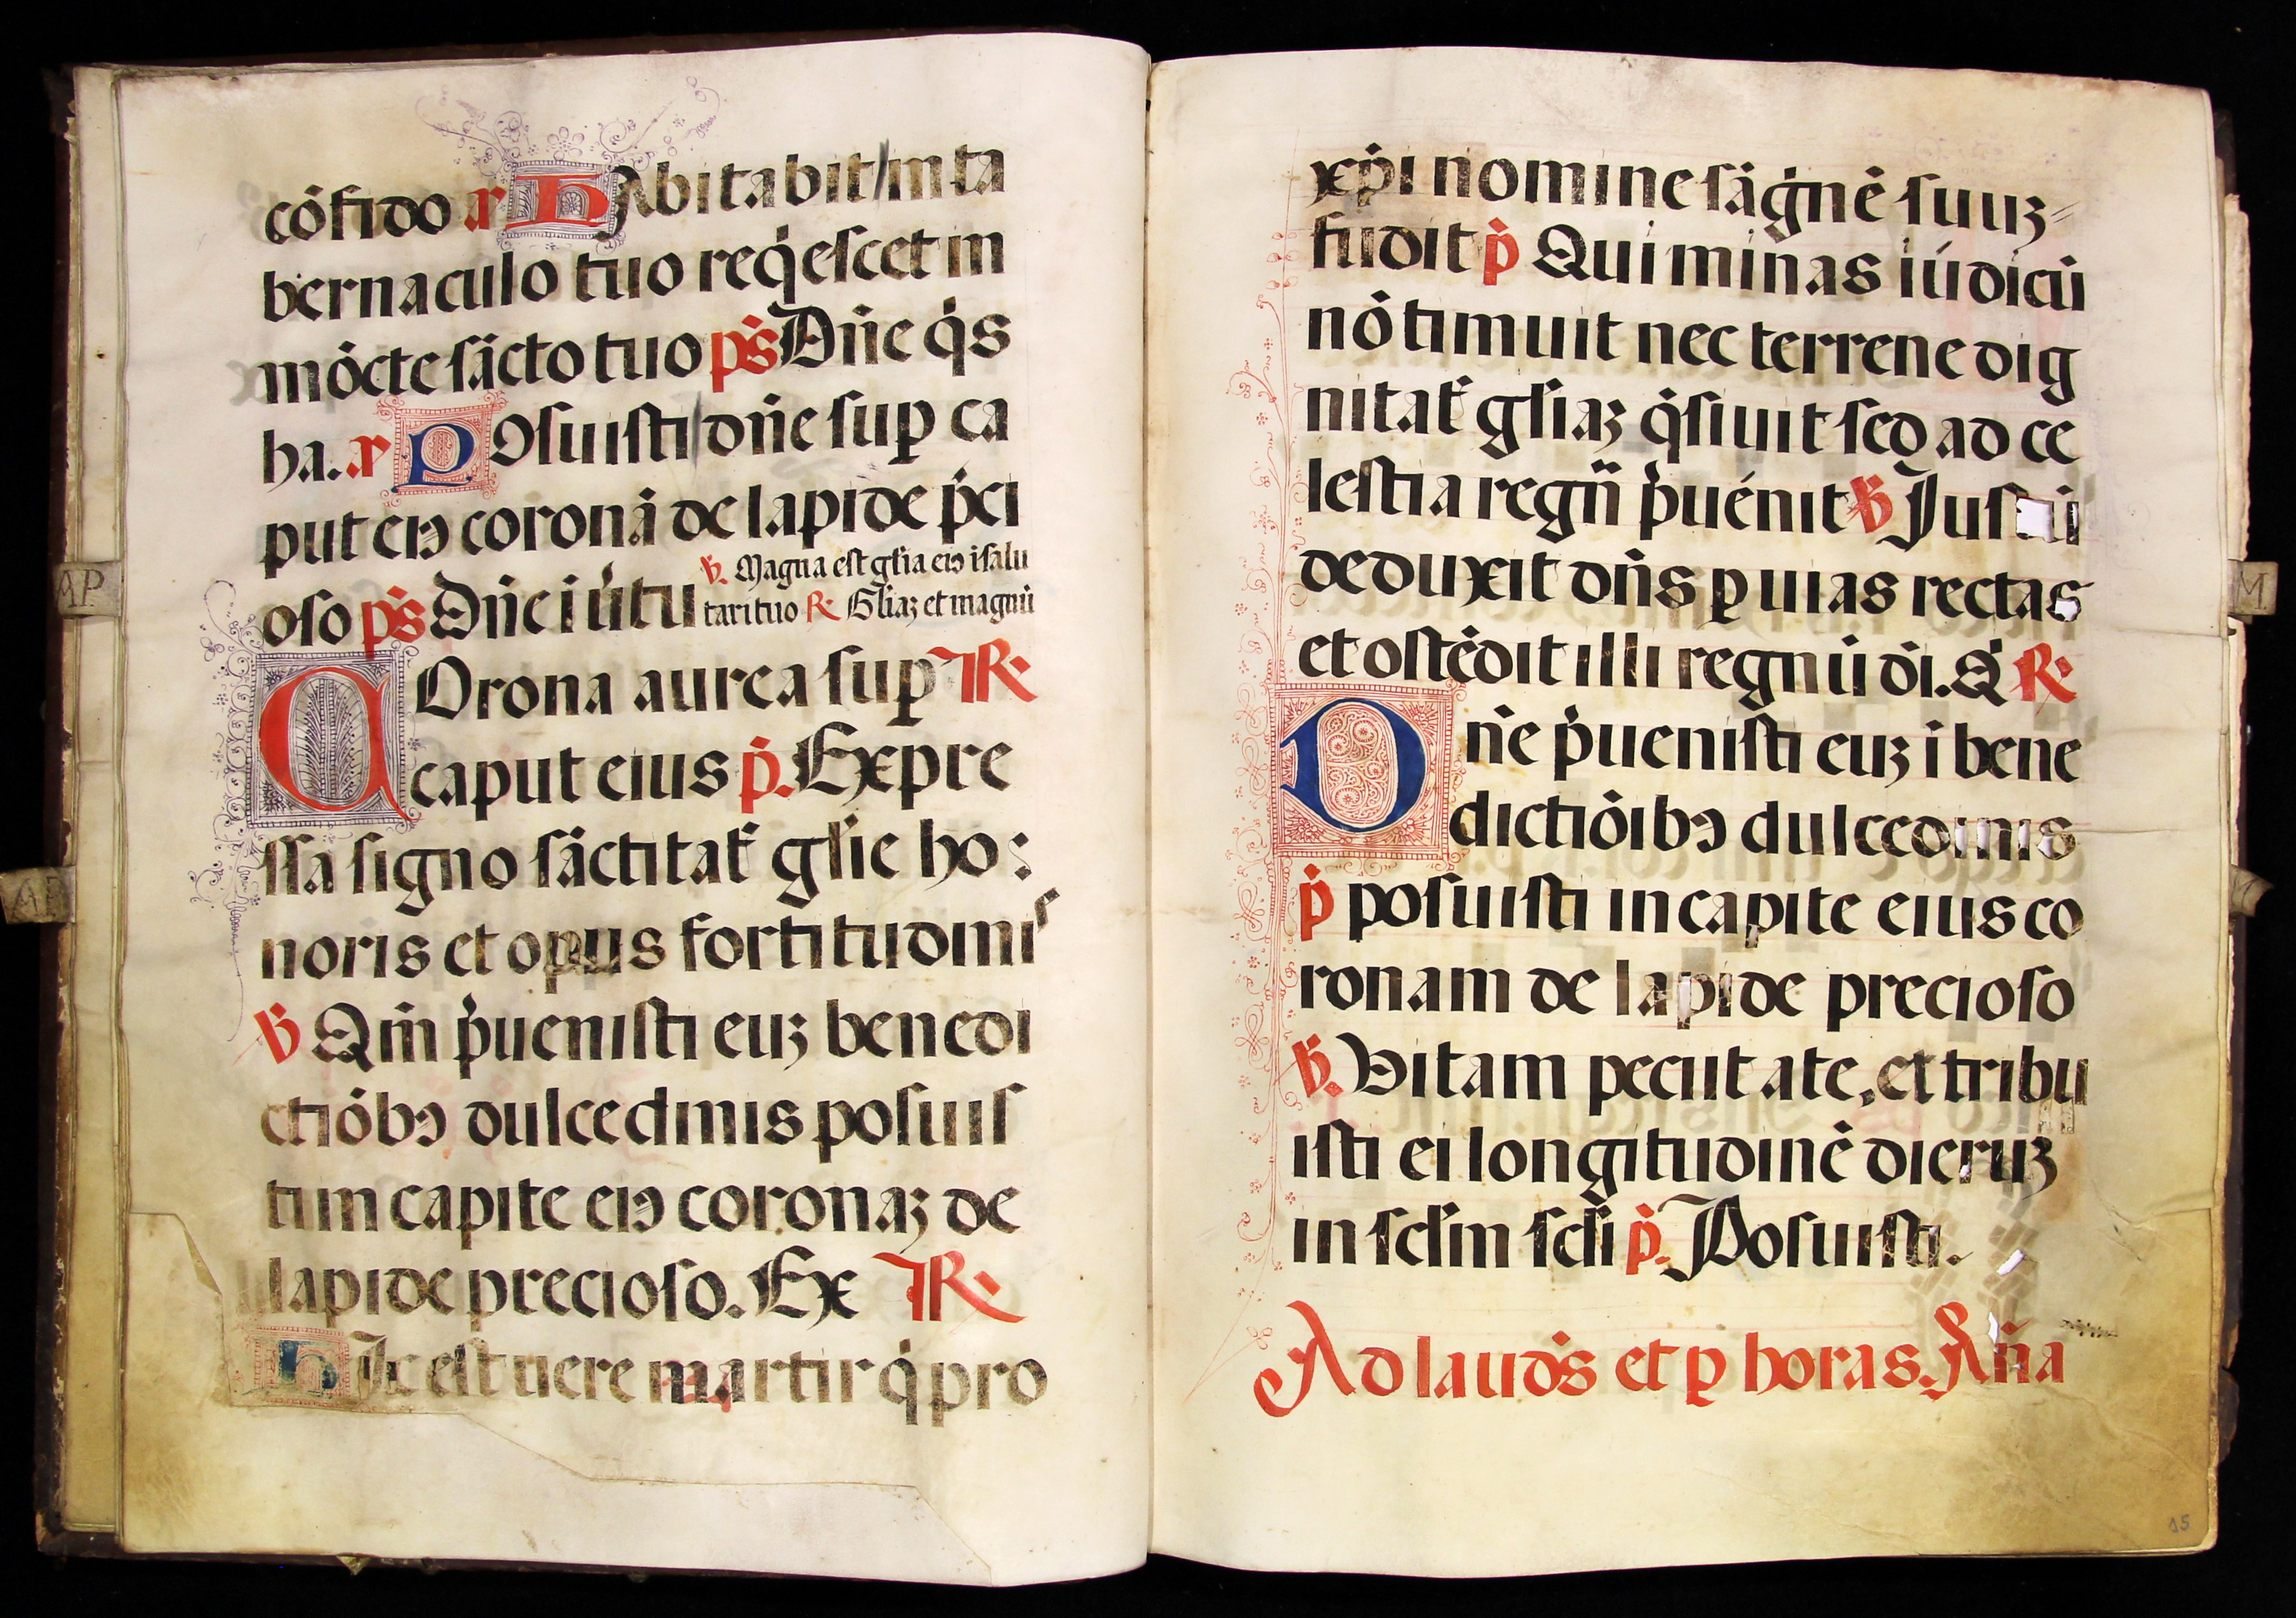 cōfido ꝶ HAbitabit in ta
bernaculo tuo reqͥescet in
mōcte sācto tuo pͥs Dñe qͥs
ha. ꝶ POsuisti dñe suꝑ ca
put eiꝰ coronā de lapide pͥci
oso pͥs Dñe i uͥtu
℣. Magna est gl̄ia eiꝰ i salu
tari tuo ℟ Gl̄iaꝫ et magnū
COrona aurea suꝑ ℟
caput eius pͥ. Expre
ssa signo sāctitat̄ gl̄ie ho:
noris et opus fortitudinis
℣ Qm̄ pͥuenisti euꝫ benedi
ctiōbꝰ dulcedinis posuis
ti in capite eiꝰ coronaꝫ de
lapide precioso. Ex ℟
HIc est uere martir qͥ pro
xp̄i nomine sāgͥnē suuꝫ
fudit pͥ Qui minas iúdicū
nō timuit nec terrene dig
nitat̄ gl̄iaꝫ qͥsiuit sed ad ce
lestia regn̄ pͥuénit ℣ Jus ū
deduxit dñs ꝑ uias rectas
et ostēdit illi regnū dī. Q̄ ℟
Dñe pͥuenisti euꝫ ī bene
dictiōibꝰ dulcedinis
pͥ posuisti in capite eius co
ronam de lapide precioso
℣. Vitam peciit a te, et tribu
isti ei longitudinē dieruꝫ
in scl̄m scl̄i pͥ. Posuisti.
Ad laudꝭ et ꝑ horas. Aña
AP.
AP
M.
15